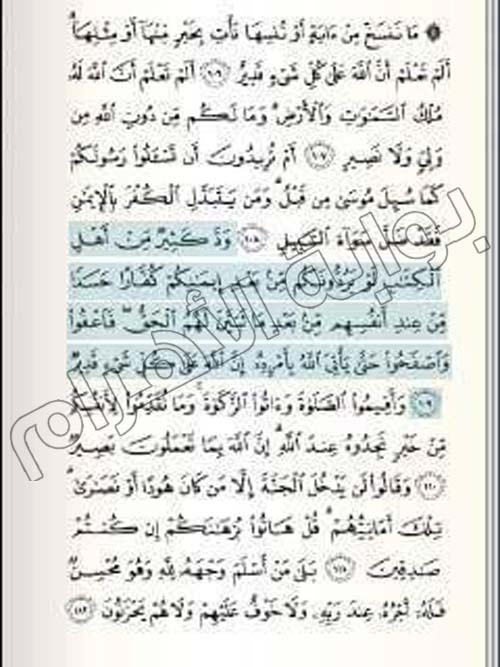 ۞ مَا نَنسَخْ مِنْ ءَايَةٍ أَوْ نُنسِهَا نَأْتِ بِخَيْرٍ مِّنْهَآ أَوْ مِثْلِهَآ ۗ
أَلَمْ تَعْلَمْ أَنَّ ٱللَّهَ عَلَىٰ كُلِّ شَىْءٍ قَدِيرٌ ١٠٦ أَلَمْ تَعْلَمْ أَنَّ ٱللَّهَ لَهُۥ
مُلْكُ ٱلسَّمَٰوَٰتِ وَٱلْأَرْضِ ۗ وَمَا لَكُم مِّن دُونِ ٱللَّهِ مِن
وَلِىٍّ وَلَا نَصِيرٍ ١٠٧ أَمْ تُرِيدُونَ أَن تَسْـَٔلُوا۟ رَسُولَكُمْ
كَمَا سُئِلَ مُوسَىٰ مِن قَبْلُ ۗ وَمَن يَتَبَدَّلِ ٱلْكُفْرَ بِٱلْإِيمَٰنِ
فَقَدْ ضَلَّ سَوَآءَ ٱلسَّبِيلِ ١٠٨ وَدَّ كَثِيرٌ مِّنْ أَهْلِ
ٱلْكِتَٰبِ لَوْ يَرُدُّونَكُم مِّنۢ بَعْدِ إِيمَٰنِكُمْ كُفَّارًا حَسَدًا
مِّنْ عِندِ أَنفُسِهِم مِّنۢ بَعْدِ مَا تَبَيَّنَ لَهُمُ ٱلْحَقُّ ۖ فَٱعْفُوا۟
وَٱصْفَحُوا۟ حَتَّىٰ يَأْتِىَ ٱللَّهُ بِأَمْرِهِۦٓ ۗ إِنَّ ٱللَّهَ عَلَىٰ كُلِّ شَىْءٍ قَدِيرٌ
١٠٩ وَأَقِيمُوا۟ ٱلصَّلَوٰةَ وَءَاتُوا۟ ٱلزَّكَوٰةَ ۚ وَمَا تُقَدِّمُوا۟ لِأَنفُسِكُم
مِّنْ خَيْرٍ تَجِدُوهُ عِندَ ٱللَّهِ ۗ إِنَّ ٱللَّهَ بِمَا تَعْمَلُونَ بَصِيرٌ
١١٠ وَقَالُوا۟ لَن يَدْخُلَ ٱلْجَنَّةَ إِلَّا مَن كَانَ هُودًا أَوْ نَصَٰرَىٰ ۗ
تِلْكَ أَمَانِيُّهُمْ ۗ قُلْ هَاتُوا۟ بُرْهَٰنَكُمْ إِن كُنتُمْ
صَٰدِقِينَ ١١١ بَلَىٰ مَنْ أَسْلَمَ وَجْهَهُۥ لِلَّهِ وَهُوَ مُحْسِنٌ
فَلَهُۥٓ أَجْرُهُۥ عِندَ رَبِّهِۦ وَلَا خَوْفٌ عَلَيْهِمْ وَلَا هُمْ يَحْزَنُونَ ١١٢
بوابة الأهرام